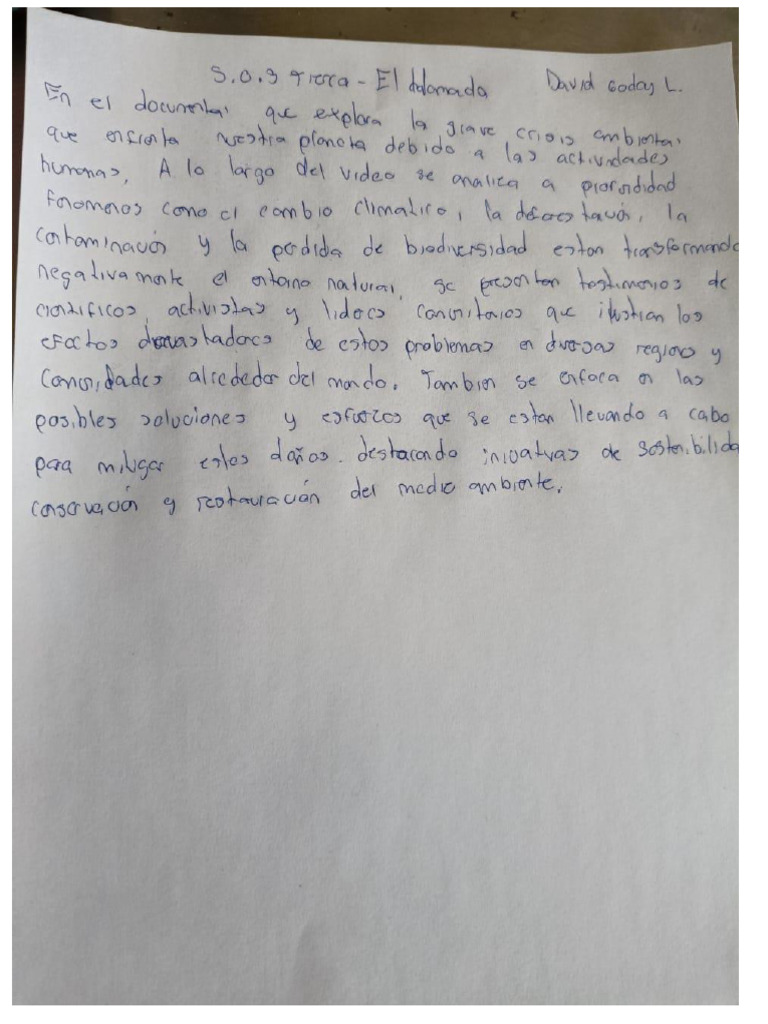 S.O.S Tierra - El          David Goday L.
En el documental que explora la grave crisis ambiental
que enfrenta nuestra planeta debido a las actividades
humanas, A lo largo del video se analiza a profundidad
fenomenos como el cambio climatico, la deforestación, la
contaminación y la perdida de biodiversidad estan transformando
negativamente el entorno natural, se presentan testimonios de
cientificos, activistas y lideres comunitarios que ilustran los
efectos devastadores de estos problemas en diversas regiones y
comunidades alrededor del mundo. Tambien se enfoca en las
posibles soluciones y esfuerzos que se estan llevando a cabo
para mitigar estos daños. destacando iniciativas de sostenibilida
conservación y restauración del medio ambiente.